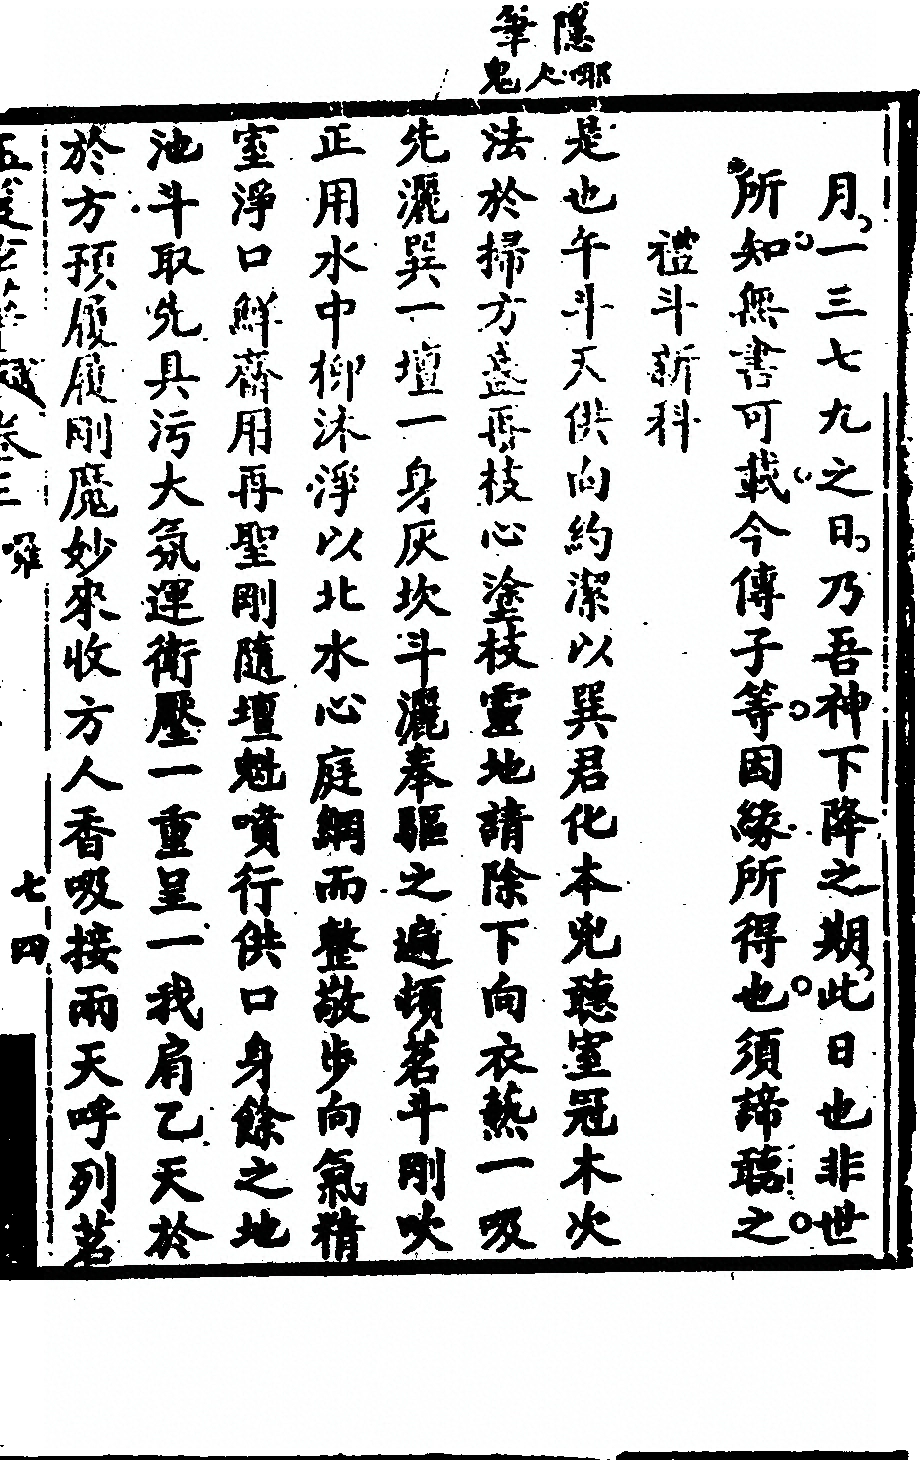 隱耶
筆人鬼
月一三七九之日乃吾神下降之期此日也非世
所知無書可載今傳子等因緣所得也須諦聽之
禮斗新科
是也午斗天供向約潔以巽君化本兆聽室冠木次
法於掃方盞再枝心塗枝靈地請除下向衣熱一吸
先灑巽一壇一身灰坎斗灑奉驅之遍頓茗斗剛吹
正用水中柳沐淨以北水心庭網而整敬步向氣精
室淨口鮮齋用再聖剛隨壇魁噴行供口身餘之地
池斗取先具污大氛運衛壓一重呈一我肩乙天於
於方預履履剛魔妙來收方人香吸接兩天呼列茗
卷三 囉 七四